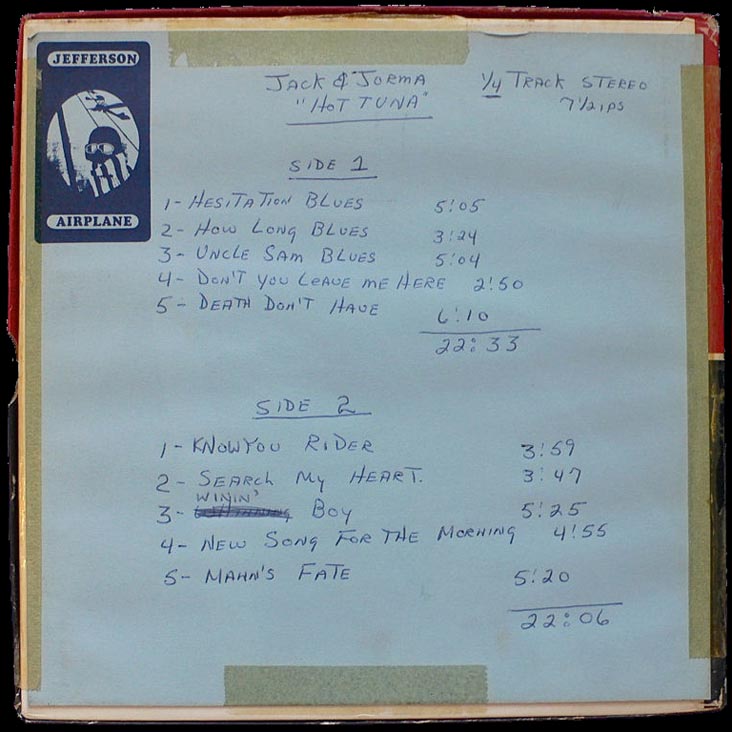 JEFFERSON
AIRPLANE
JACK & JORMA
"HOT TUNA"
1/4 TRACK STEREO
7 1/2 IPS
SIDE 1
1- HESITATION BLUES 5:05
2- HOW LONG BLUES 3:24
3- UNCLE SAM BLUES 5:04
4- DON'T YOU LEAVE ME HERE 2:50
5- DEATH DON'T HAVE 6:10
22:33
SIDE 2
1- KNOW YOU RIDER 3:59
2- SEARCH MY HEART. 3:47
WININ'
3- BOY 5:25
4- NEW SONG FOR THE MORNING 4:55
5- MAHN'S FATE 5:20
22:06